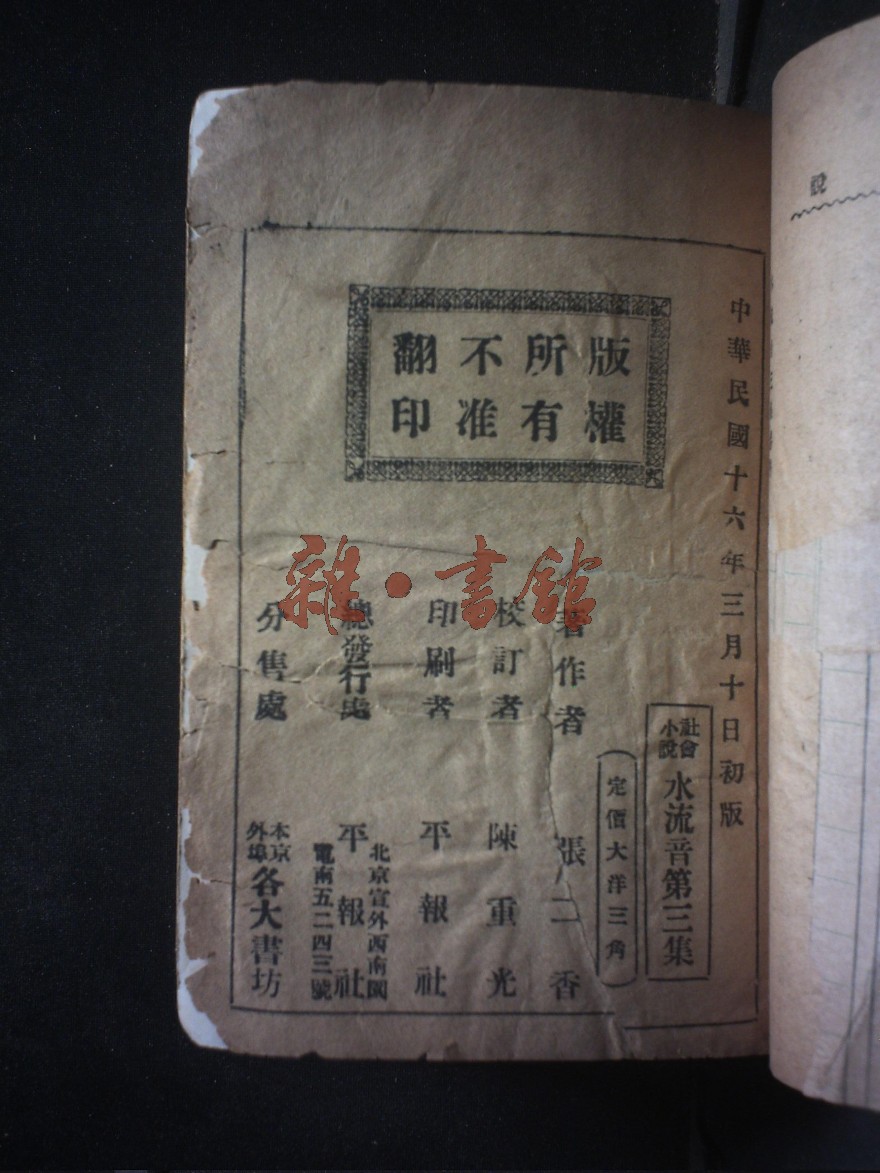 說
中華民國十六年三月十日初版
版權
所有
不准
翻印
社會
小說
水流音第三集
定價大洋三角
著作者 張二香
校訂者 陳重光
印刷者 平報社
總發行處 平報社
北京宣外西南園
電南五二四三號
分售處
本京
外埠
各大書坊
雜·書館